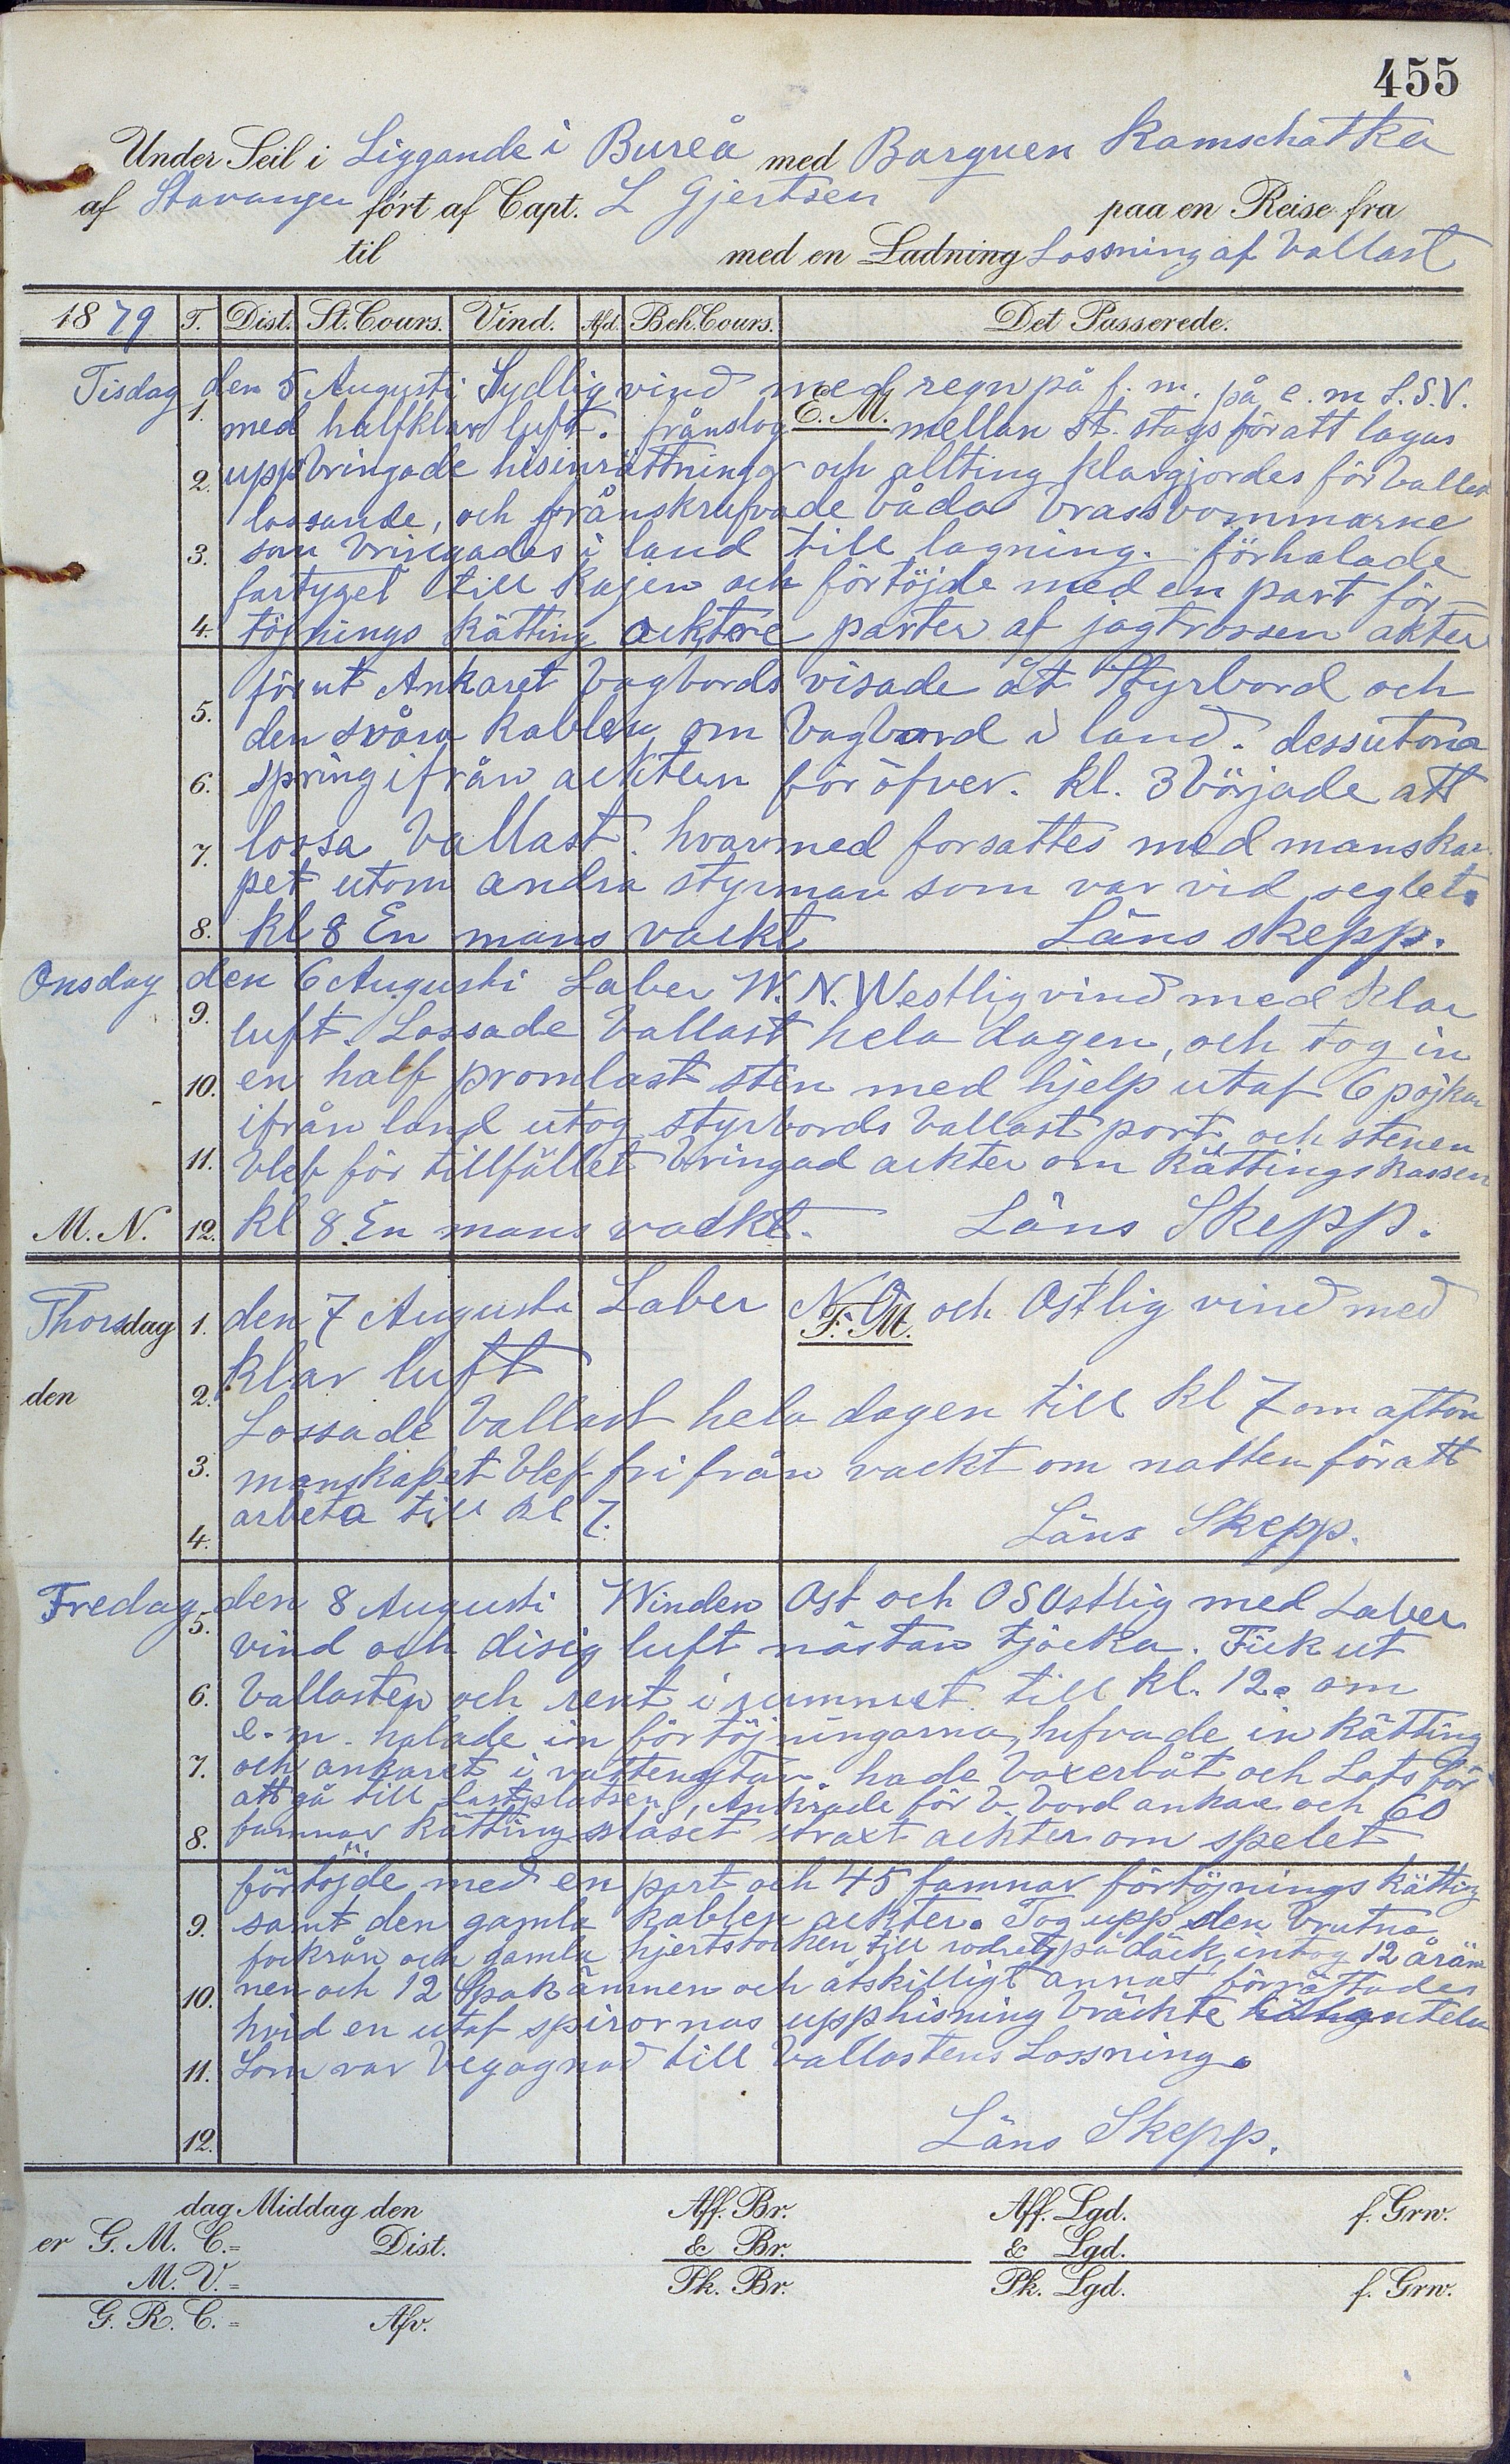 455
Under Seil i Liggande i Bureå med Barquen Kamschatka
af Stavanger fört af Capt. L Gjertsen paa en Reise fra
til med en Ladning Lossning af Vallast
1879 T. Dist. St. Cours. Vind. Afd. Beh. Cours. Det Passerede.
Tisdag den 5 Augusti Sydlig vind med regn på f. m. på e. m S.S.V.
1. E. M.
med halfklar luft. frånslog mellan st. stags för att lagas
2. upp bringade hisinrättningar och allting klargjordes för vallast
lossande, och frånskrufvade båda brassbommarne
3. som bringades i land till lagning. förhalade
fartyget till Kajen och förtöjde med en part för-
4. töjnings Kätting ocktre parter af jagtrossen akter
förut Ankaret bagbords visade åt Styrbord och
5. den svåra kablen om bagbord i land. dessutom
6. spring ifrån ackter för öfver. kl. 3 började att
7. lossa Vallast. hvarmed forsattes med manska-
pet utom andra styrman som var vid seglet.
8. kl 8 En mans vackt Läns skepp.
Onsdag den 6 Augusti Laber W. N. Westlig vind med klar
9. luft. Lossade Vallast hela dagen, och tog in
10. en half promlast sten med hjelp utaf 6 pojkar
ifrån land utog styrbords Vallast port, och stenen
11. blef för tillfället bringad ackter om Kättingskassen
M. N. 12. Kl 8 En mans vackt. Läns Skepp.
Thorsdag 1. den 7 Augusti Laber N. O. och Ostlig vind med
F. M.
den 2. klar luft
Lossade Vallast hela dagen till kl 7 om afton
3. manskapet blef fri från vackt om natten för att
4. arbeta till kl 7. Läns Skepp.
Fredag den 8 Augusti Winden Ost och OSOstlig med Laber
5. vind och disig luft nästan tjocka. Fick ut
6. Vallasten och rent i rummet till kl. 12. om
e. m. halade in förtöjningarna, hifvade in Kätting
7. och ankaret i vattengtar hade boxerbåt och Lots för
att gå till Lastplatsen, Ankrade för b. bord ankare och 60
8. famnar Kätting slåset straxt ackter om spelet
förtöjde med en part och 45 famnar förtöjnings Kätting
9. samt den gamla kablen ackter. Tog upp den brutna
fockrån och gamla hjertstocken till rodret på däck, intog 12 åräm
10. nen och 12 Spakämnen och åtskilligt annat förrättades
hvid en utaf spirornas upphisning bräckte
11. Som var begagnad till Vallastens Lossning.
12. Läns Skepp.
dag Middag den Aff. Br. Aff. Lgd. f. Grw.
er G. M. C.= Dist. & Br. & Lgd.
M. V.= Pk. Br. Pk. Lgd. f. Grw.
G. R. C.= Afv.